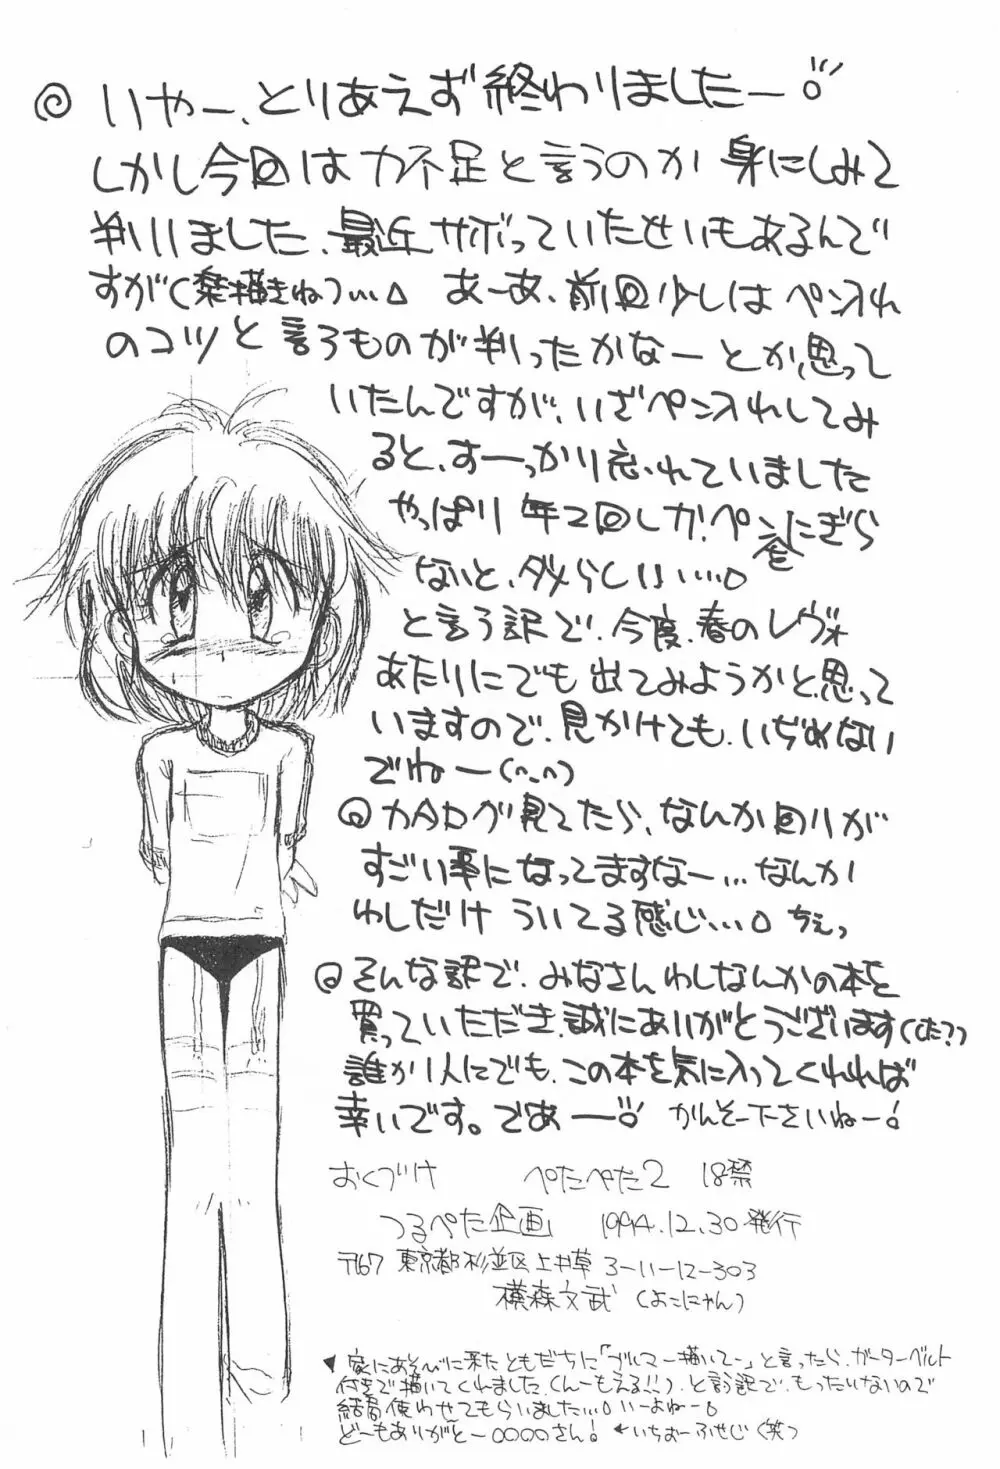 ◎ いやー、とりあえず終わりましたー
しかし今回は力不足と言うのが身にしみて
判りました、最近サボっていたせいもあるんで
すが(楽描きね)… あーあ、前回少しはペン入れ
のコツと言うものが判ったかなーとか思って
いたんですが、いざペン入れしてみ
ると、すーっかり忘れていました
やっぱり年2回しかペンにぎら
ないと、ダメらしい…。
と言う訳で、今度、春のレヴォ
あたりにでも出てみようかと思って
いますので、見かけても、いぢめない
でねー(^_^)
◎カタログ見てたら、なんか回りが
すごい事になってますなー…なんか
わしだけういてる感じ…。ちぇっ
◎そんな訳で、みなさんわしなんかの本を
買っていただき、誠にありがとうございます
誰か1人にでも、この本を気に入ってくれれば
幸いです。であー かんそー下さいねー!
おくづけ ぺたぺた2 18禁
つるぺた企画 1994.12.30発行
〒167 東京都杉並区上井草3-11-12-303
横森文武(よこにゃん)
▼ 家にあそびに来たともだちに「ブルマー描いてー」と言ったら、ガーターベルト
付きで描いてくれました、(んーもえる!!)、と言う訳で、もったいないので
結局使わせてもらいました…。いーよねー。
どーもありがとー○○○○さん! ←いちおーふせじ(笑)